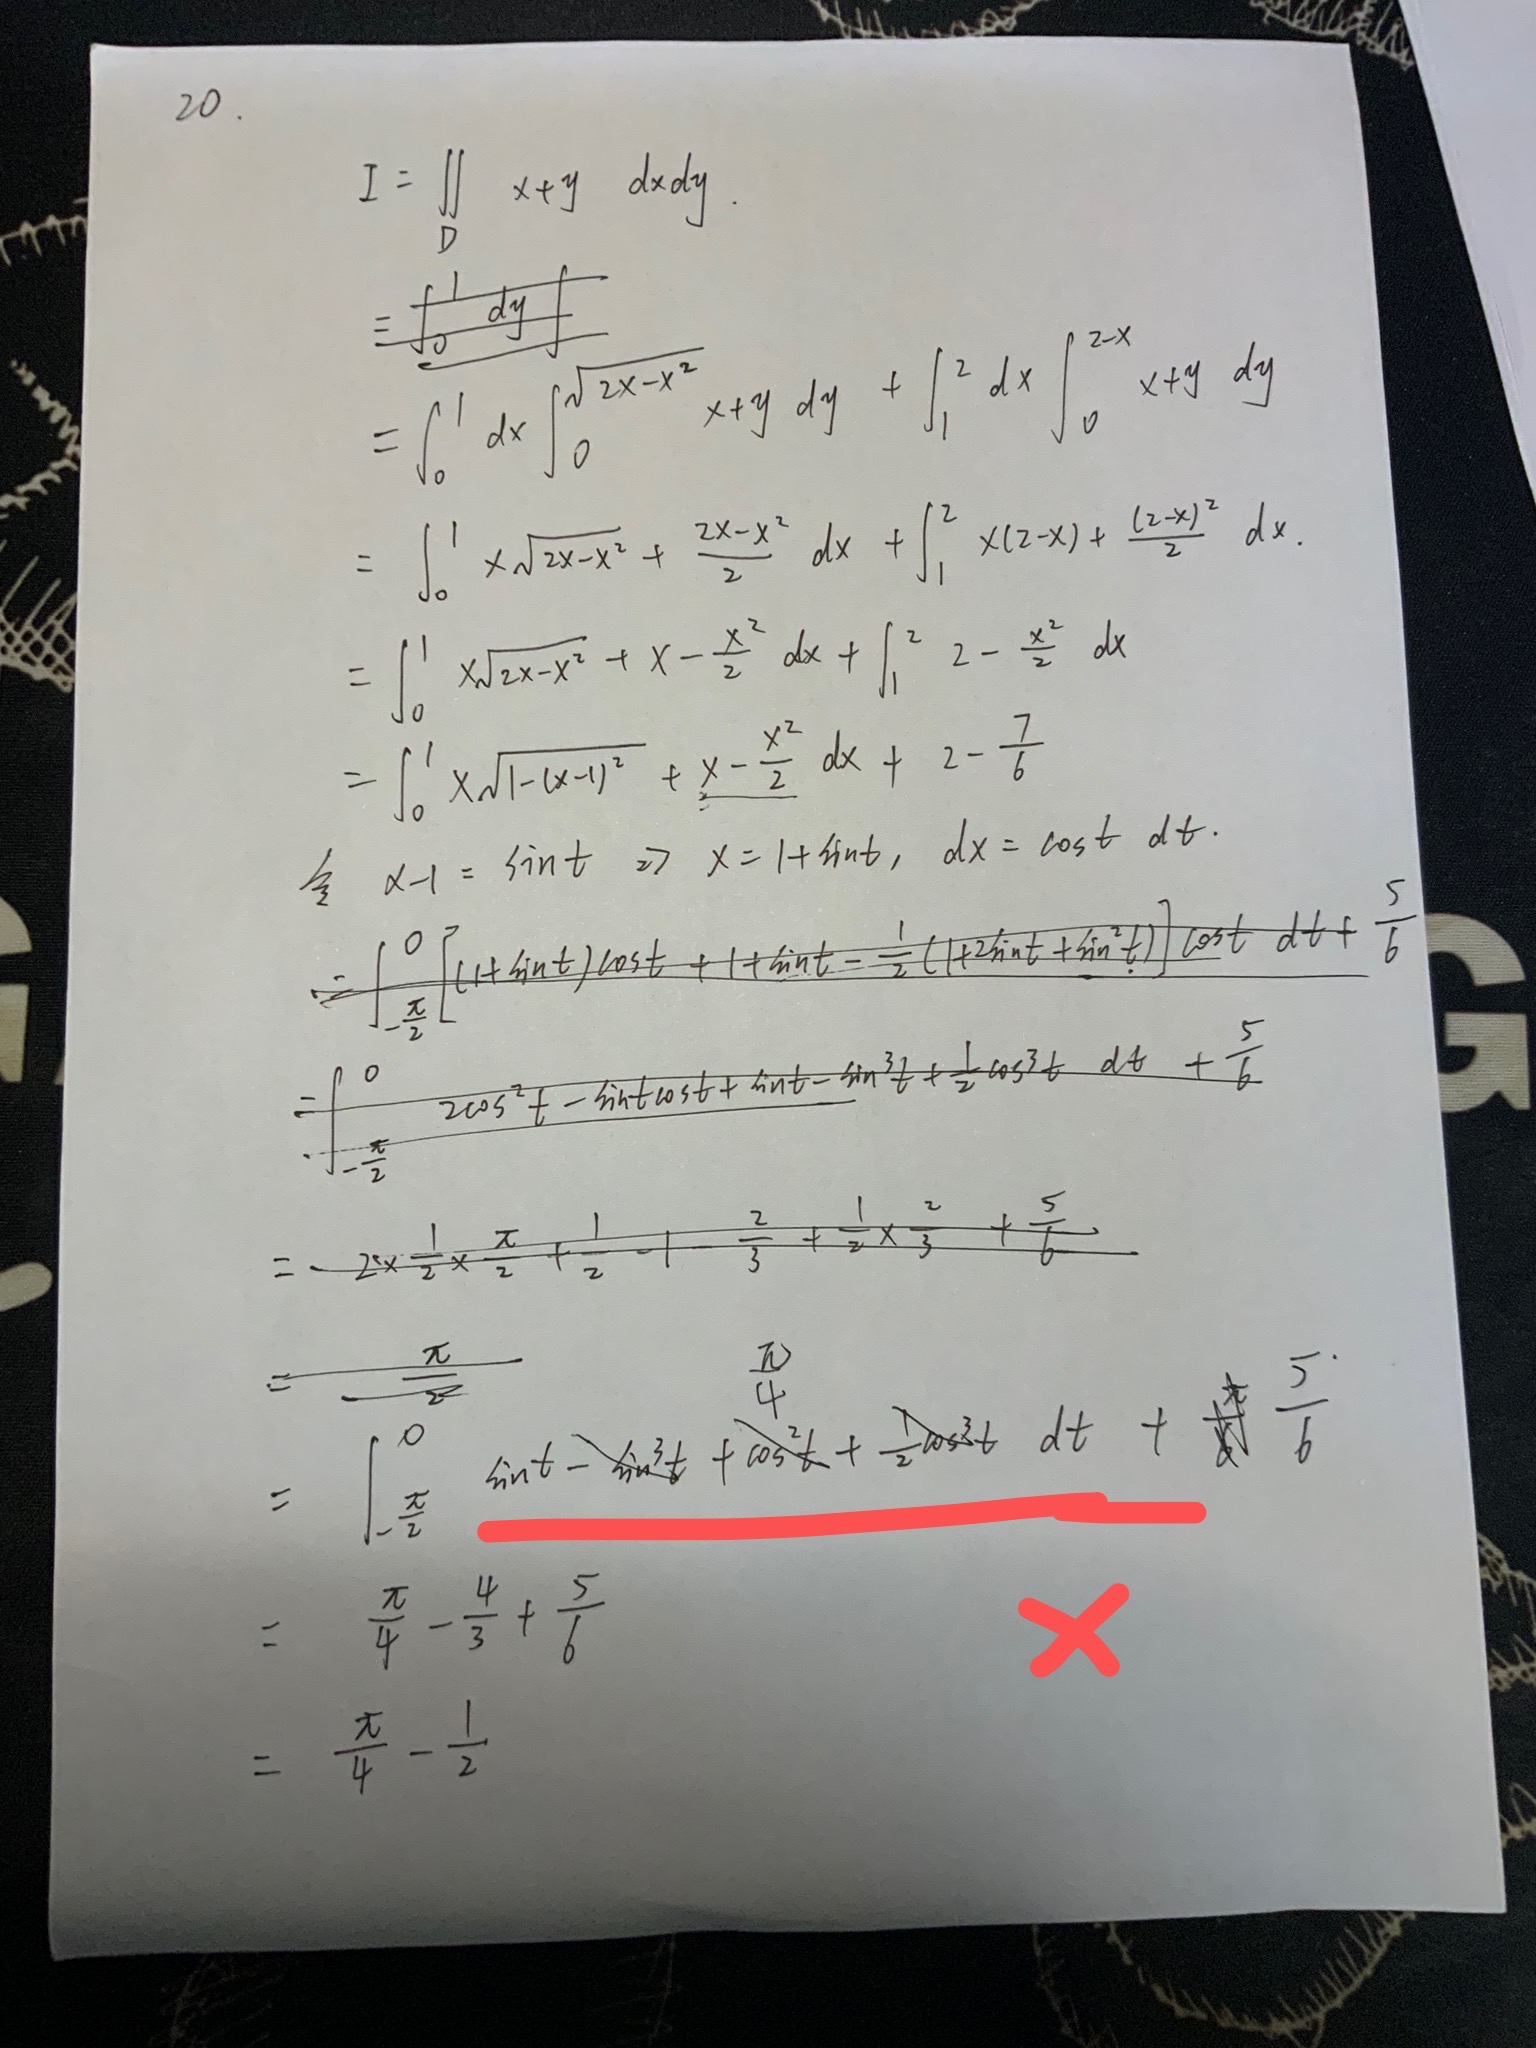 20.
I = ∬_D x+y dxdy.
= ∫_0^1 dy ∫
= ∫_0^1 dx ∫_0^{√(2x-x²)} x+y dy + ∫_1^2 dx ∫_0^{2-x} x+y dy
= ∫_0^1 x√(2x-x²) + (2x-x²)/2 dx + ∫_1^2 x(2-x) + (2-x)²/2 dx.
= ∫_0^1 x√(2x-x²) + x - x²/2 dx + ∫_1^2 2 - x²/2 dx
= ∫_0^1 x√(1-(x-1)²) + x - x²/2 dx + 2 - 7/6
令 x-1 = sint ⇒ x = 1+sint, dx = cost dt.
= ∫_{-π/2}^0 [(1+sint)cost + 1+sint - 1/2(1+2sint+sin²t)] cost dt + 5/6
= ∫_{-π/2}^0 2cos²t - sintcost + sint - sin³t + 1/2 cos³t dt + 5/6
= 2 × 1/2 × π/2 + 1/2 - 1 - 2/3 + 1/2 × 2/3 + 5/6
= π/2
π/4
= ∫_{-π/2}^0 sint - sin³t + cos²t + 1/2 cos³t dt + 5/6
= π/4 - 4/3 + 5/6
= π/4 - 1/2
G
G